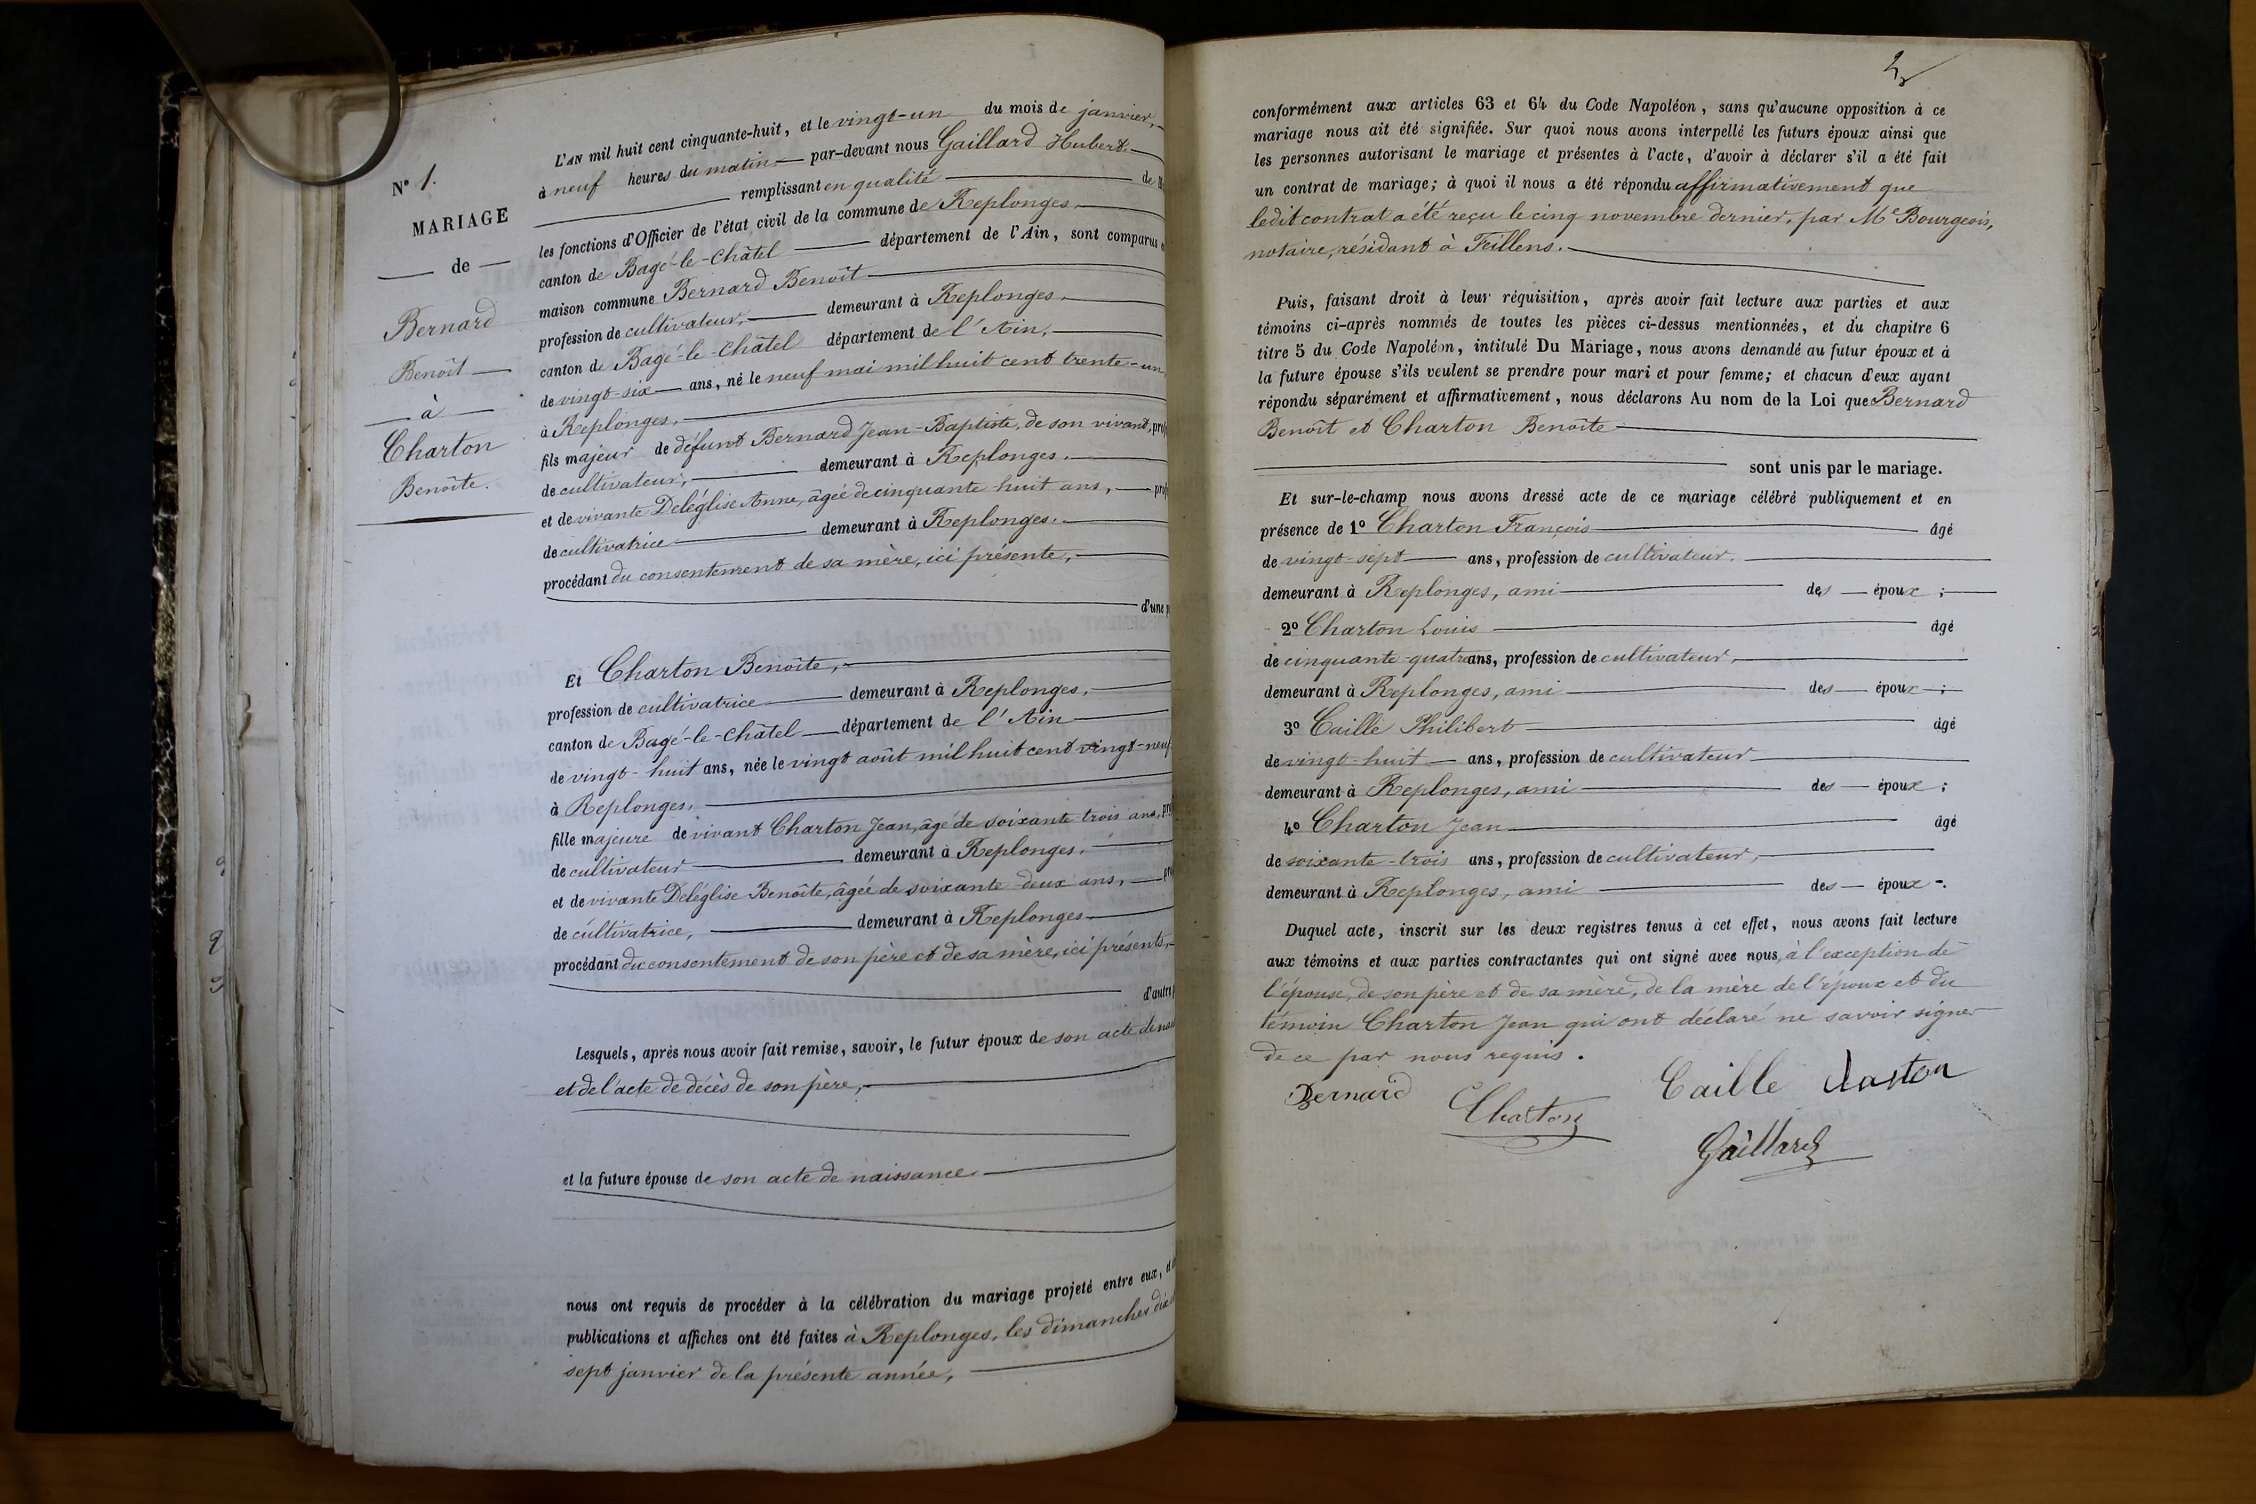 N° 1.
MARIAGE
de
Bernard
Benoît
à
Charton
Benoîte.
L'AN mil huit cent cinquante-huit, et le vingt-un du mois de janvier,
à neuf heures du matin par-devant nous Gaillard Hubert
remplissant en qualité de
les fonctions d'Officier de l'état civil de la commune de Replonges
canton de Bagé-le-Châtel département de l'Ain, sont comparus
maison commune Bernard Benoît
profession de cultivateur, demeurant à Replonges
canton de Bagé-le-Châtel département de l'Ain,
de vingt-six ans, né le neuf mai mil huit cent trente-un,
à Replonges,
fils majeur de défunt Bernard Jean-Baptiste, de son vivant,
de cultivateur, demeurant à Replonges.
et de vivante Deléglise Anne, âgée de cinquante huit ans,
de cultivatrice demeurant à Replonges.
procédant du consentement de sa mère, ici présente,
d'une
Et Charton Benoîte,
profession de cultivatrice demeurant à Replonges,
canton de Bagé-le-Châtel département de l'Ain
de vingt-huit ans, née le vingt août mil huit cent vingt-neuf
à Replonges,
fille majeure de vivant Charton Jean, âgé de soixante trois ans,
de cultivateur demeurant à Replonges,
et de vivante Deléglise Benoîte, âgée de soixante deux ans,
de cultivatrice, demeurant à Replonges
procédant du consentement de son père et de sa mère, ici présents,
d'autre
Lesquels, après nous avoir fait remise, savoir, le futur époux de son acte de
et de l'acte de décès de son père,
et la future épouse de son acte de naissance
nous ont requis de procéder à la célébration du mariage projeté entre eux,
publications et affiches ont été faites à Replonges, les dimanches
sept janvier de la présente année,
conformément aux articles 63 et 64 du Code Napoléon, sans qu'aucune opposition à ce
mariage nous ait été signifiée. Sur quoi nous avons interpellé les futurs époux ainsi que
les personnes autorisant le mariage et présentes à l'acte, d'avoir à déclarer s'il a été fait
un contrat de mariage; à quoi il nous a été répondu affirmativement que
ledit contrat a été reçu le cinq novembre dernier, par Me Bourgeois,
notaire, résidant à Feillens.
Puis, faisant droit à leur réquisition, après avoir fait lecture aux parties et aux
témoins ci-après nommés de toutes les pièces ci-dessus mentionnées, et du chapitre 6
titre 5 du Code Napoléon, intitulé Du Mariage, nous avons demandé au futur époux et à
la future épouse s'ils veulent se prendre pour mari et pour femme; et chacun d'eux ayant
répondu séparément et affirmativement, nous déclarons Au nom de la Loi que Bernard
Benoît et Charton Benoîte
sont unis par le mariage.
Et sur-le-champ nous avons dressé acte de ce mariage célébré publiquement et en
présence de 1° Charton François âgé
de vingt-sept ans, profession de cultivateur.
demeurant à Replonges, ami des époux ;
2° Charton Louis âgé
de cinquante-quatre ans, profession de cultivateur,
demeurant à Replonges, ami des époux ;
3° Caille Philibert âgé
de vingt-huit ans, profession de cultivateur
demeurant à Replonges, ami des époux ;
4° Charton Jean âgé
de soixante-trois ans, profession de cultivateur,
demeurant à Replonges, ami des époux.
Duquel acte, inscrit sur les deux registres tenus à cet effet, nous avons fait lecture
aux témoins et aux parties contractantes qui ont signé avec nous, à l'exception de
l'épouse, de son père et de sa mère, de la mère de l'époux et du
témoin Charton Jean qui ont déclaré ne savoir signer
de ce par nous requis.
Bernard Charton Caille Charton
Gaillard